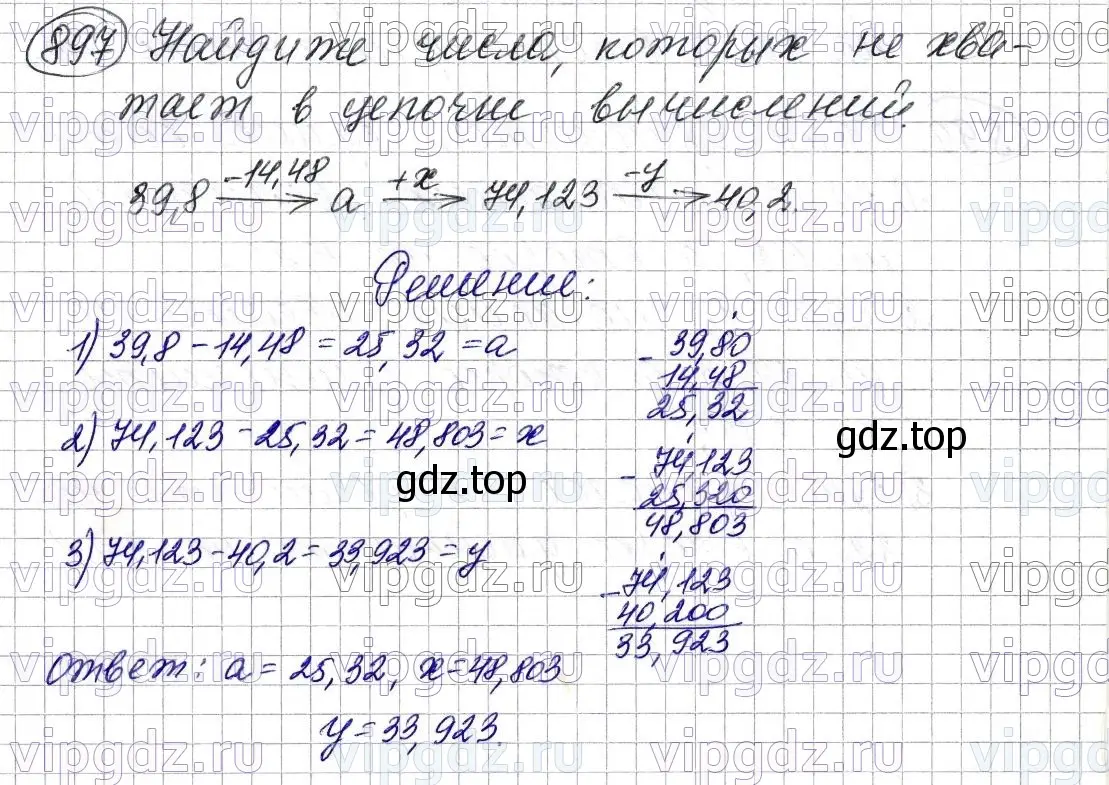 897 Найдите числа, которых не хва-
тает в цепочке вычислений.
39,8 -14,48→ a +x→ 74,123 -y→ 40,2.
Решение:
1) 39,8 - 14,48 = 25,32 = a
- 39,80
14,48
25,32
2) 74,123 - 25,32 = 48,803 = x
- 74,123
25,320
48,803
3) 74,123 - 40,2 = 33,923 = y
- 74,123
40,200
33,923
Ответ: a = 25,32, x = 48,803
y = 33,923.
gdz.top
gdz.top
vipgdz.ru